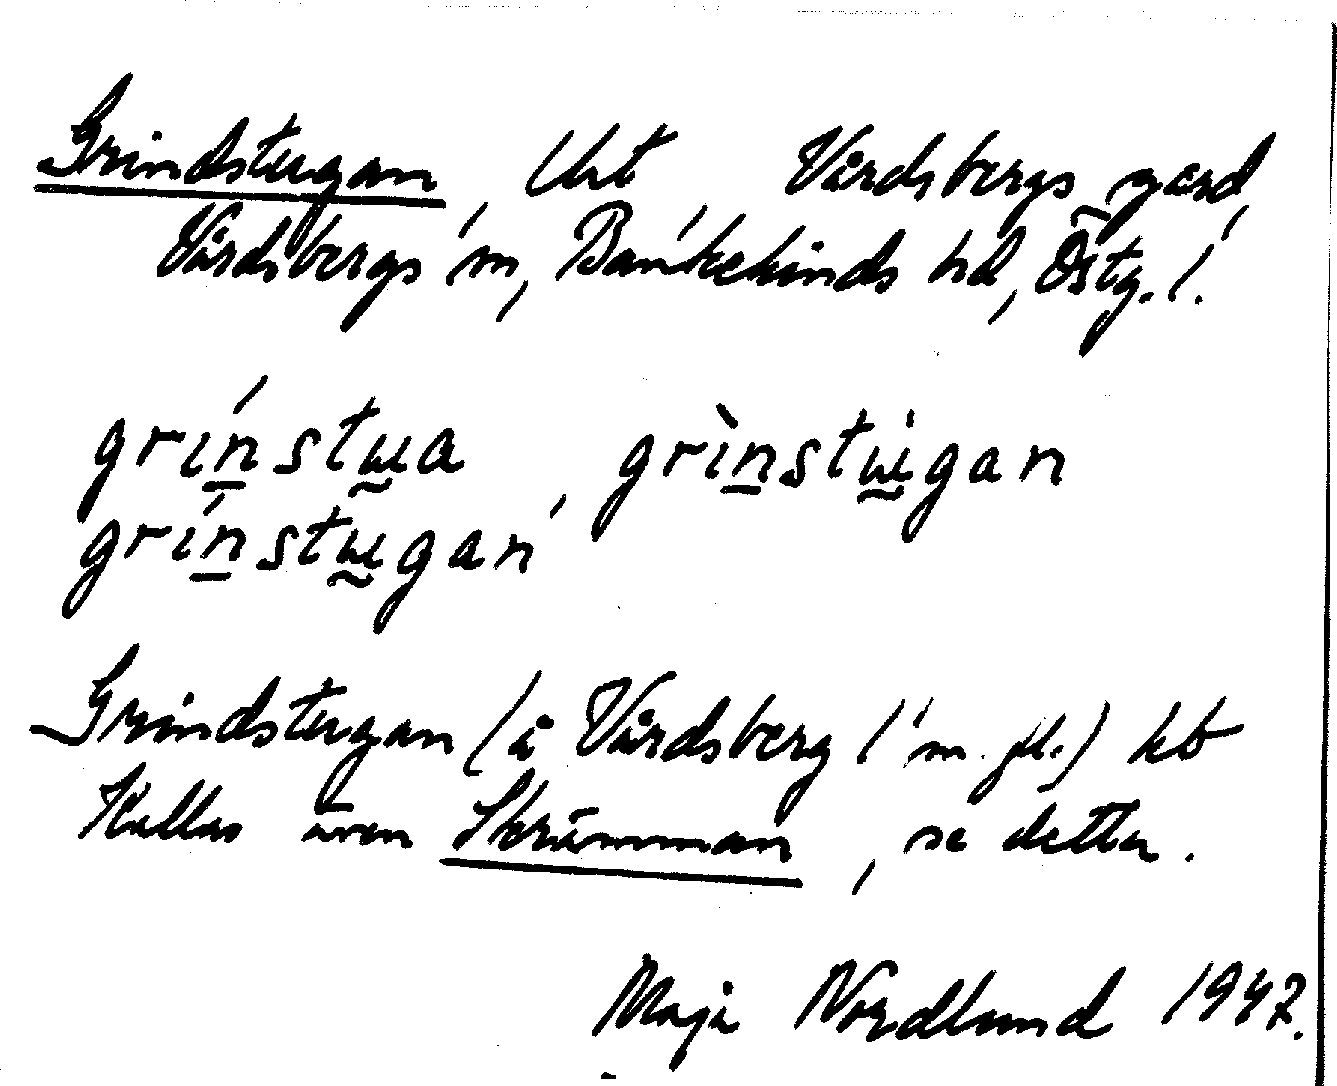 Grindstugan, Uht, Vårdsbergs gård,
Vårdsbergs sn, Bankekinds hd, Östg. l.
grinstɯa, grìnstɯgan
grinstɯgan
Grindstugan (å Vårdsberg 1 m. fl.) kb
Kallas även Skrämman, se detta.
Maja Nordlund 1947.